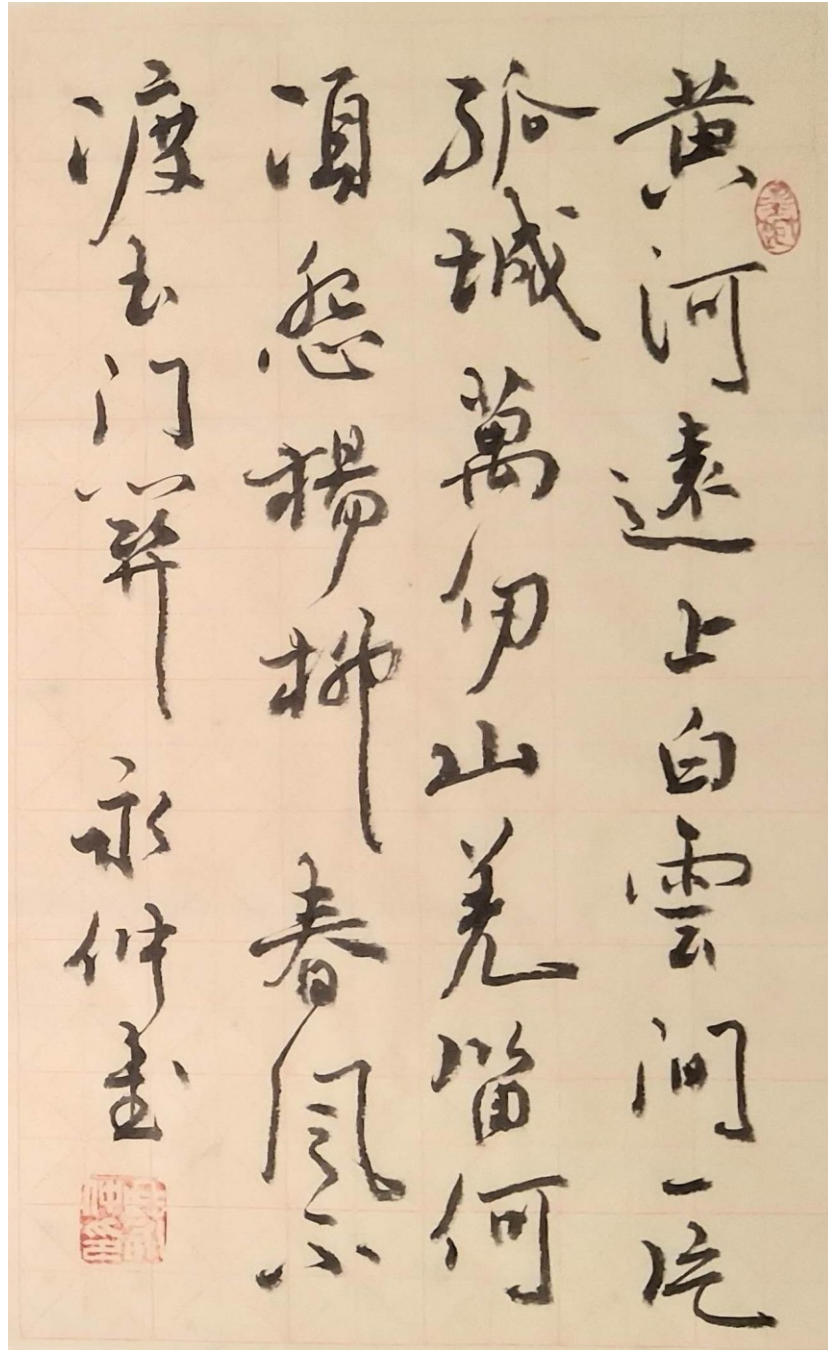 黄河遠上白雲间一片
孤城萬仞山羌笛何
須怨楊柳春風不
渡玉门關永仲書